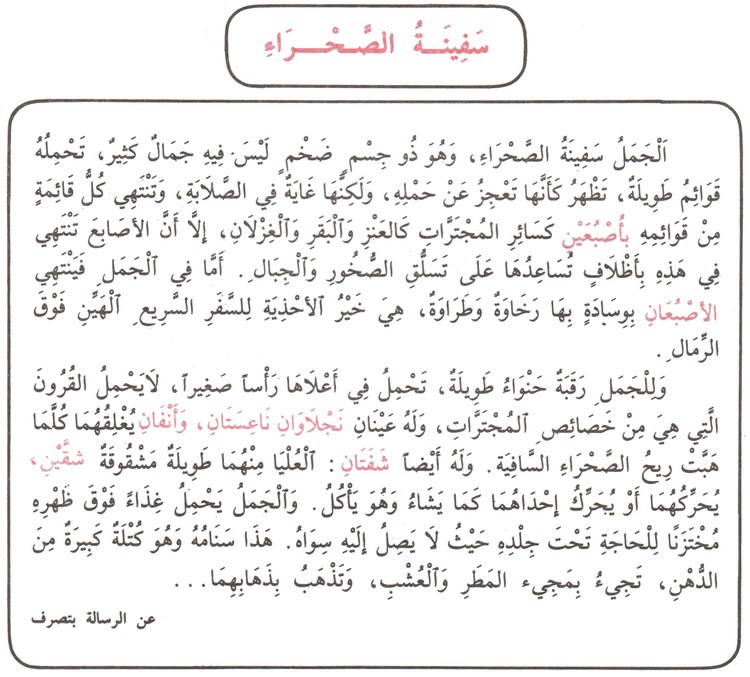 سَفِينَـةُ الصَّـحْـرَاءِ
اَلْجَمَلُ سَفِينَةُ الصَّحْرَاءِ، وَهُوَ ذُو جِسْمٍ ضَخْمٍ لَيْسَ فِيهِ جَمَالٌ كَثِيرٌ، تَحْمِلُهُ
قَوَائِمُ طَوِيلَةٌ، تَظْهَرُ كَأَنَّهَا تَعْجِزُ عَنْ حَمْلِهِ، وَلَكِنَّهَا غَايَةٌ فِي الصَّلَابَةِ، وَتَنْتَهِي كُلُّ قَائِمَةٍ
مِنْ قَوَائِمِهِ بِأُصْبُعَيْنِ كَسَائِرِ المُجْتَرَّاتِ كَالعَنْزِ وَٱلْبَقَرِ وَٱلْغِزْلَانِ، إِلاَّ أَنَّ الأَصَابِعَ تَنْتَهِي
فِي هَذِهِ بِأَظْلَافٍ تُسَاعِدُهَا عَلَى تَسَلُّقِ الصُّخُورِ وَٱلْجِبَالِ. أَمَّا فِي ٱلْجَمَلِ فَيَنْتَهِي
الأُصْبُعَانِ بِوِسَادَةٍ بِهَا رَخَاوَةٌ وَطَرَاوَةٌ، هِيَ خَيْرُ ٱلْأَحْذِيَةِ لِلسَّفَرِ السَّرِيعِ ٱلْهَيِّنِ فَوْقَ
الرِّمَالِ.
وَلِلْجَمَلِ رَقَبَةٌ حَنْوَاءُ طَوِيلَةٌ، تَحْمِلُ فِي أَعْلَاهَا رَأْساً صَغِيراً، لَايَحْمِلُ القُرُونَ
الَّتِي هِيَ مِنْ خَصَائِصِ المُجْتَرَّاتِ، وَلَهُ عَيْنَانِ نَجْلَاوَانِ نَاعِسَتَانِ، وَأَنْفَانِ يُغْلِقُهُمَا كُلَّمَا
هَبَّتْ رِيحُ الصَّحْرَاءِ السَّافِيَةِ. وَلَهُ أَيْضاً شَفَتَانِ: ٱلْعُلْيَا مِنْهُمَا طَوِيلَةٌ مَشْقُوقَةٌ شَقَّيْنِ،
يُحَرِّكُهُمَا أَوْ يُحَرِّكُ إِحْدَاهُمَا كَمَا يَشَاءُ وَهُوَ يَأْكُلُ. وَٱلْجَمَلُ يَحْمِلُ غِذَاءً فَوْقَ ظَهْرِهِ
مُخْتَزَنًا لِلْحَاجَةِ تَحْتَ جِلْدِهِ حَيْثُ لَا يَصِلُ إِلَيْهِ سِوَاهُ. هَذَا سَنَامُهُ وَهُوَ كُتْلَةٌ كَبِيرَةٌ مِنَ
الدُّهْنِ، تَجِيءُ بِمَجِيءِ المَطَرِ وَٱلْعُشْبِ، وَتَذْهَبُ بِذَهَابِهِمَا...
عن الرسالة بتصرف